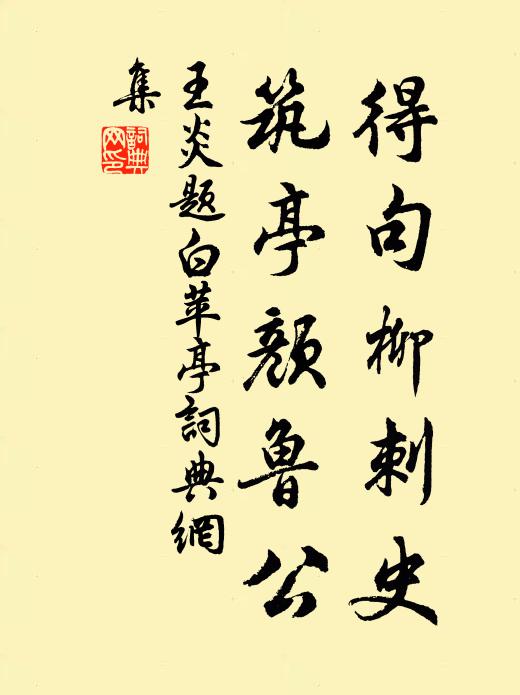 得句柳刺史
筑亭颜鲁公
王炎题白苹亭詞典網
集
詞典網印